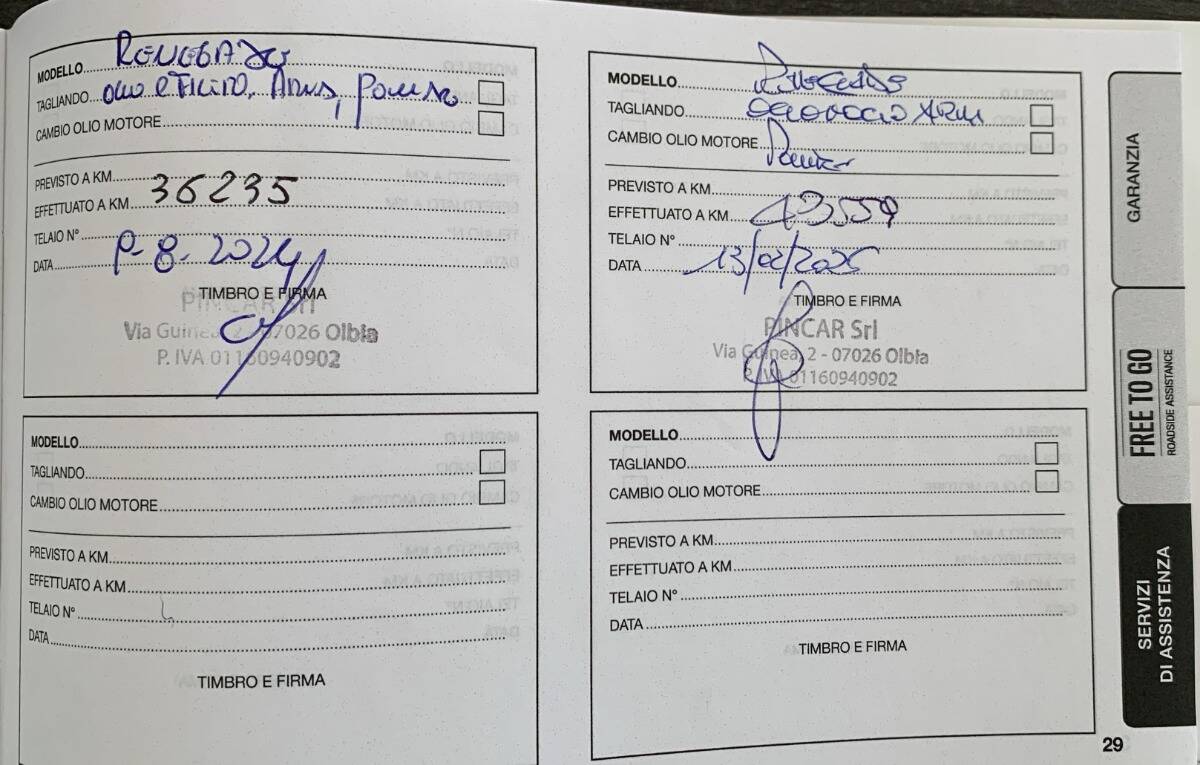 MODELLO
TAGLIANDO
CAMBIO OLIO MOTORE
PREVISTO A KM
EFFETTUATO A KM 36235
TELAIO N°
DATA 8-2024
TIMBRO E FIRMA
PINCAR Srl
Via Guinea, 2 - 07026 Olbia
P. IVA 01160940902
MODELLO
TAGLIANDO
CAMBIO OLIO MOTORE
PREVISTO A KM
EFFETTUATO A KM 43559
TELAIO N°
DATA 13/02/2025
TIMBRO E FIRMA
PINCAR Srl
Via Guinea, 2 - 07026 Olbia
P. IVA 01160940902
MODELLO
TAGLIANDO
CAMBIO OLIO MOTORE
PREVISTO A KM
EFFETTUATO A KM
TELAIO N°
DATA
TIMBRO E FIRMA
MODELLO
TAGLIANDO
CAMBIO OLIO MOTORE
PREVISTO A KM
EFFETTUATO A KM
TELAIO N°
DATA
TIMBRO E FIRMA
GARANZIA
FREE TO GO
ROADSIDE ASSISTANCE
SERVIZI
DI ASSISTENZA
29